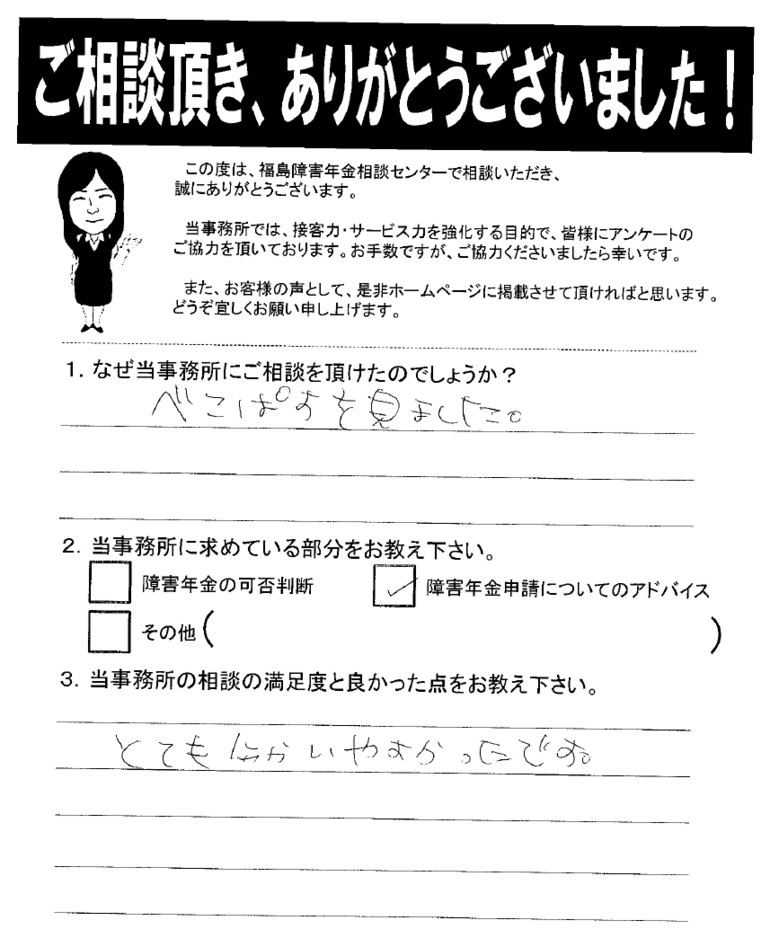 ご相談頂き、ありがとうございました！
この度は、福島障害年金相談センターで相談いただき、
誠にありがとうございます。
当事務所では、接客力・サービス力を強化する目的で、皆様にアンケートの
ご協力を頂いております。お手数ですが、ご協力くださいましたら幸いです。
また、お客様の声として、是非ホームページに掲載させて頂ければと思います。
どうぞ宜しくお願い申し上げます。
1. なぜ当事務所にご相談を頂けたのでしょうか？
べこぱすを見ました。
2. 当事務所に求めている部分をお教え下さい。
障害年金の可否判断 ✓ 障害年金申請についてのアドバイス
その他 ( )
3. 当事務所の相談の満足度と良かった点をお教え下さい。
とても かいやすかったです。